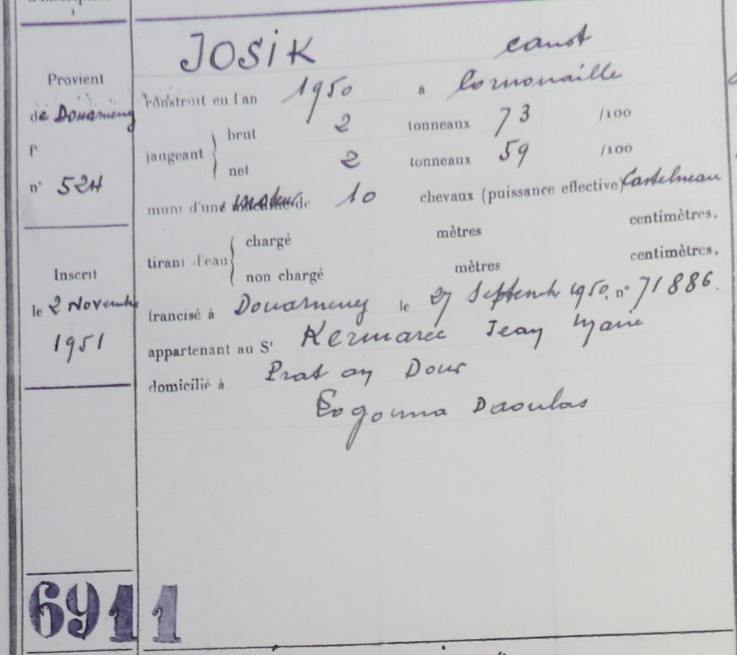 1
Provient
de Douarnenez
f°
n° 524
Inscrit
le 2 Novembre
1951
JOSIK canot
construit en l'an 1950 à Cornouaille
jaugeant brut 2 tonneaux 73 /100
net 2 tonneaux 59 /100
muni d'une moteur de 10 chevaux (puissance effective) Castelneau
tirant d'eau chargé mètres centimètres.
non chargé mètres centimètres.
francisé à Douarnenez le 27 Septembre 1950. n° 71886.
appartenant au Sr Kermarec Jean Marie
domicilié à Prat an Dour
Logonna Daoulas
6911